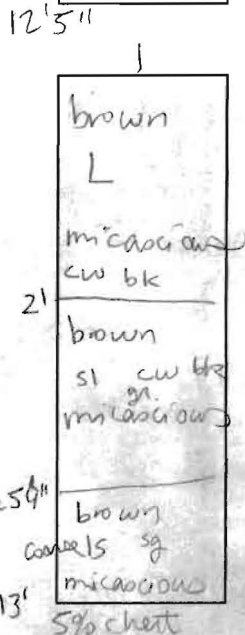 12'5"
1
brown
L
micascious
cw bk
2'
brown
sl cw bk
gr.
micascious
brown
sg
micascious
13'
5% chert